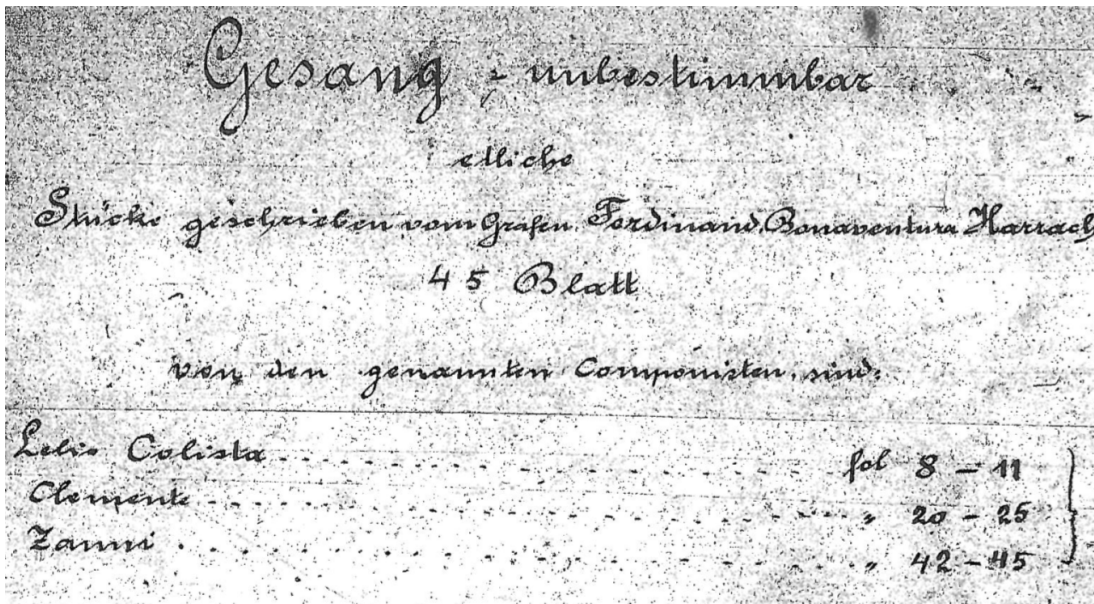 Gesang - unbestimmbar
etliche
Stücke geschrieben vom Grafen Ferdinand Bonaventura Harrach
45 Blatt
von den genannten Componisten sind:
Lelio Colista fol 8 - 11
Clemente " 20 - 25
Zanni " 42 - 45